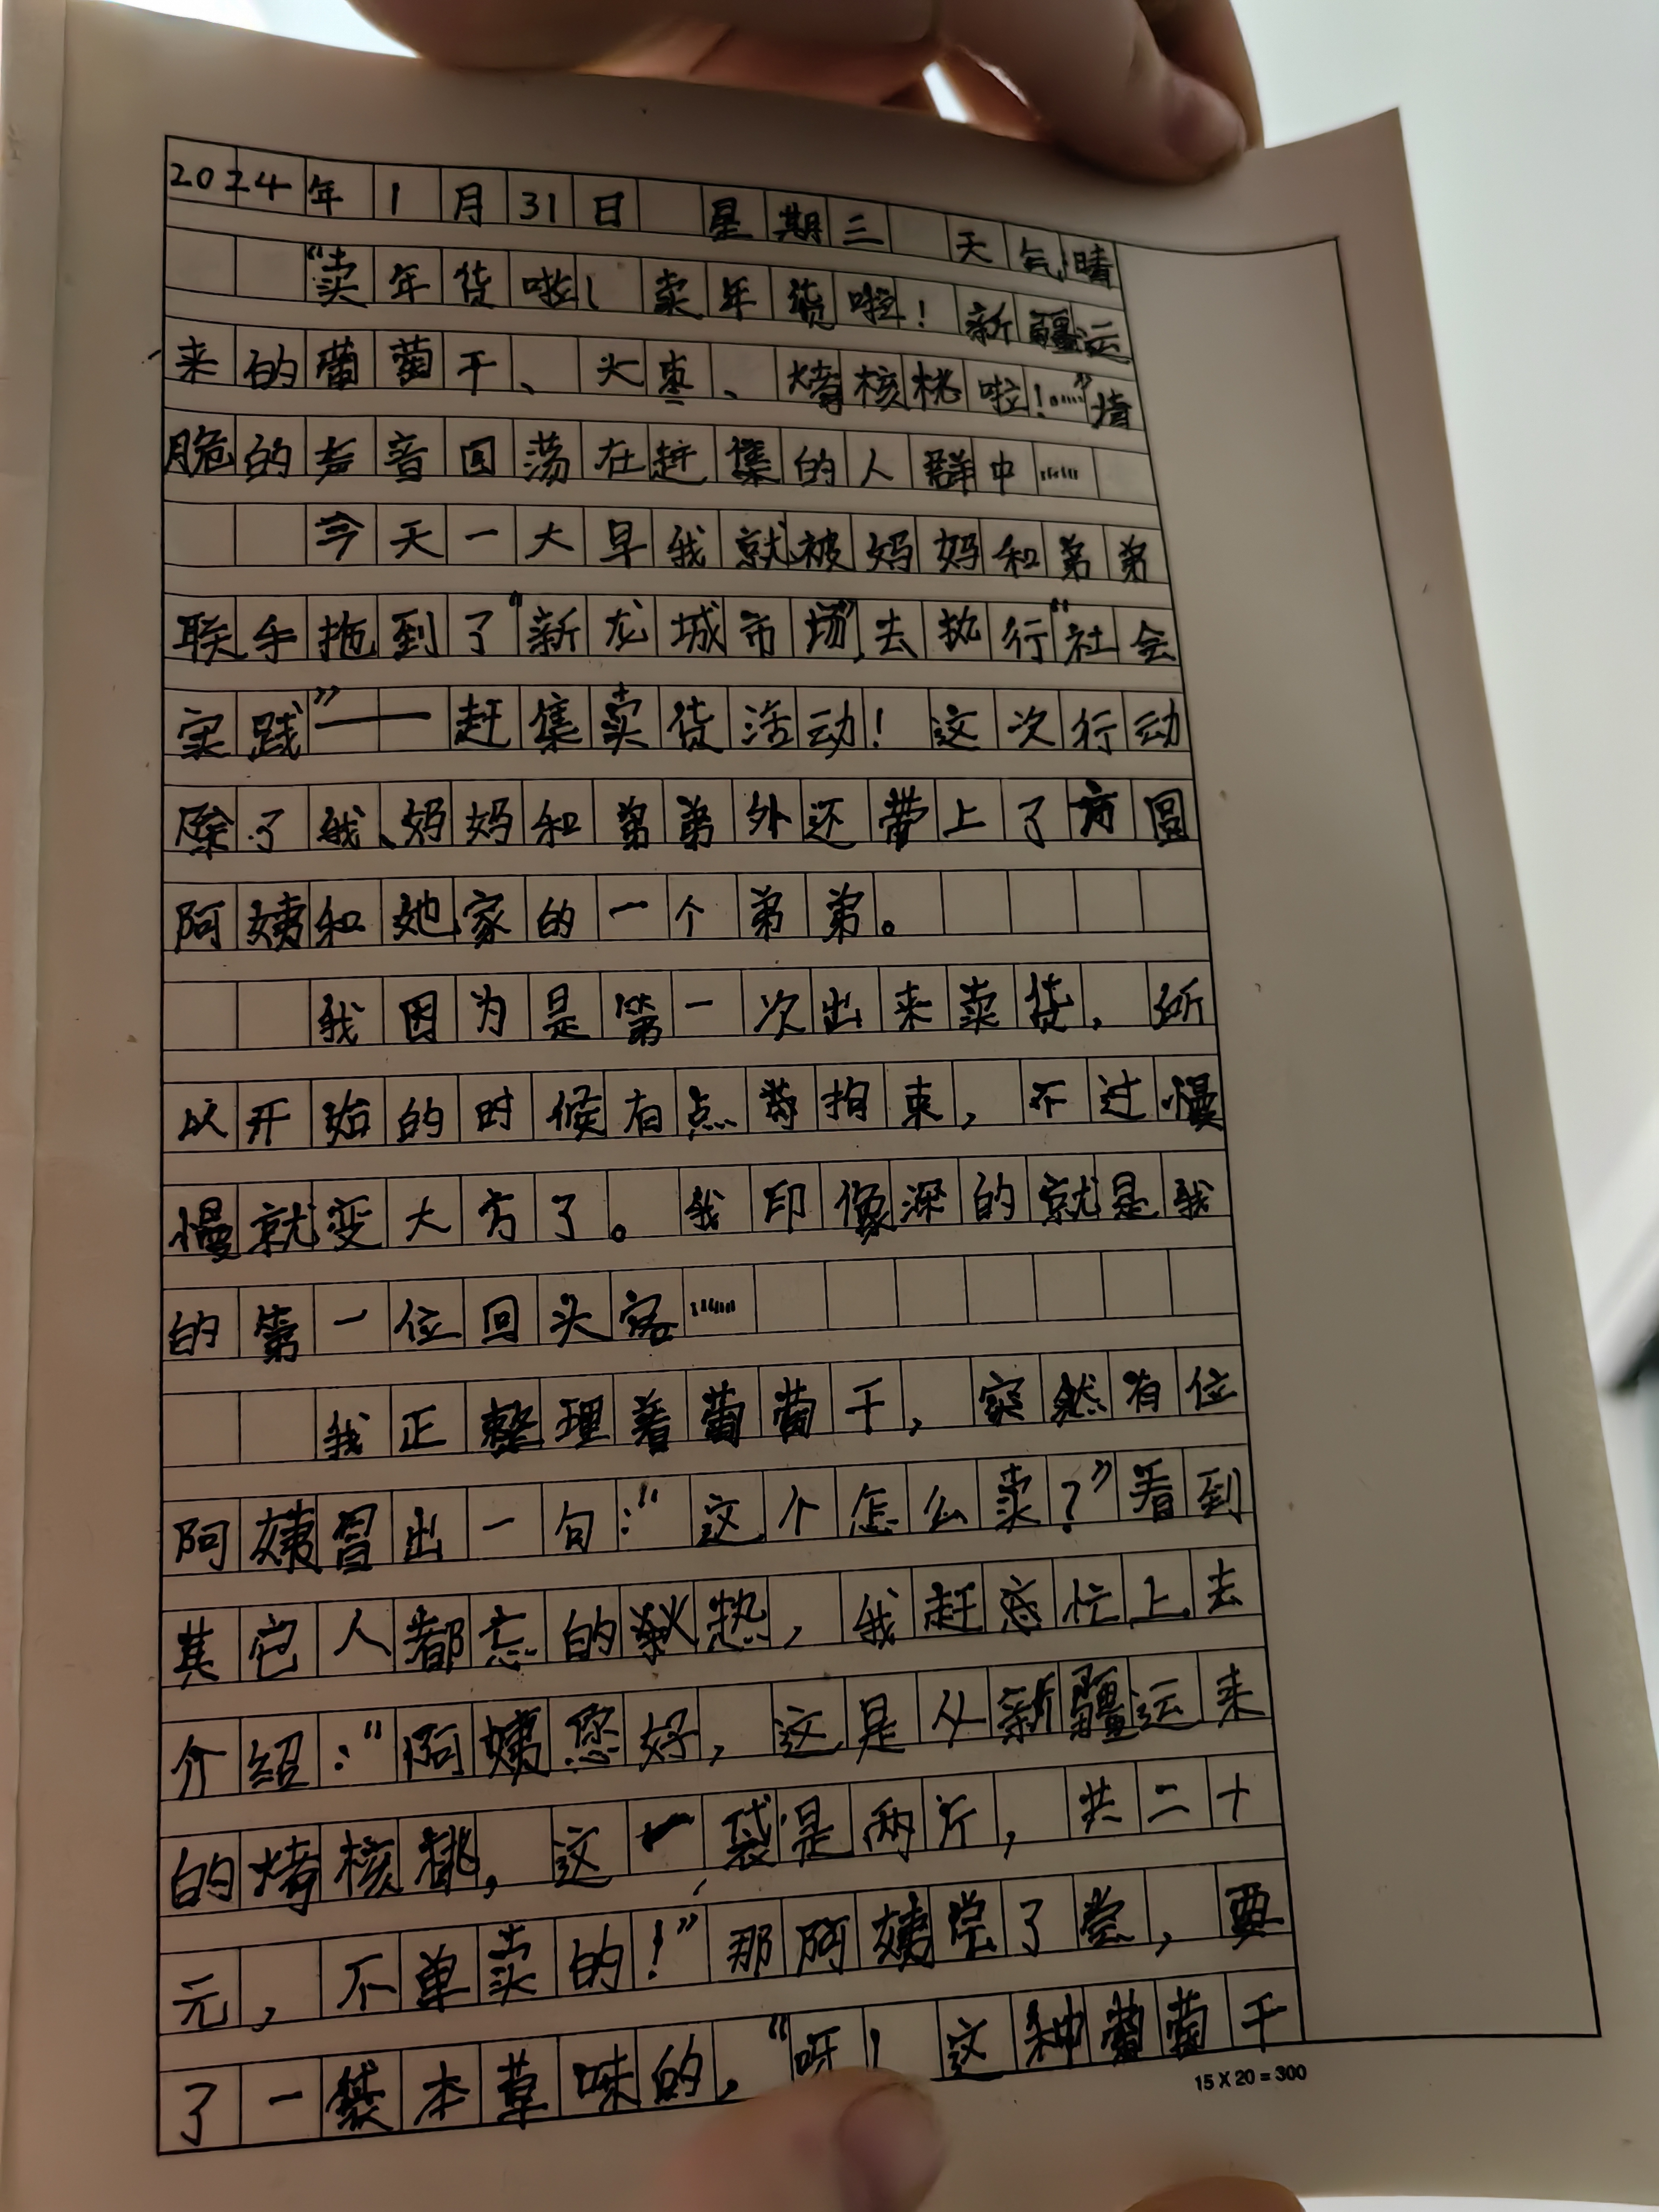 2024年1月31日 星期三 天气晴
“卖年货啦!卖年货啦!新疆运
来的葡萄干、大枣、烤核桃啦!……”清
脆的声音回荡在赶集的人群中……
今天一大早我就被妈妈和弟弟
联手拖到了“新龙城市场”去执行“社会
实践”——赶集卖货活动!这次行动
除了我、妈妈和弟弟外还带上了方圆
阿姨和她家的一个弟弟。
我因为是第一次出来卖货,所
以开始的时候有点拘束,不过慢
慢就变大方了。我印像深的就是我
的第一位回头客……
我正整理着葡萄干,突然有位
阿姨冒出一句:“这个怎么卖?”看到
其它人都忘的热,我赶忙上去
介绍:“阿姨您好,这是从新疆运来
的烤核桃,这一袋是两斤,共二十
元,不单卖的!”那阿姨尝了尝,要
了一袋本草味的,“呀!这种葡萄干
15 X 20 = 300